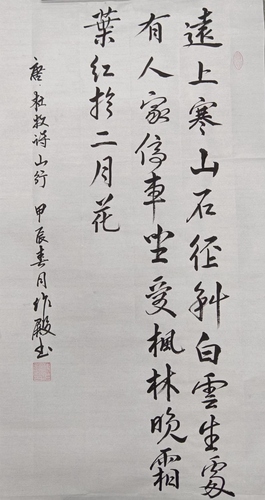 遠上寒山石徑斜白雲生處
有人家停車坐愛楓林晚霜
葉紅於二月花
唐杜牧詩山行 甲辰春月 殿书